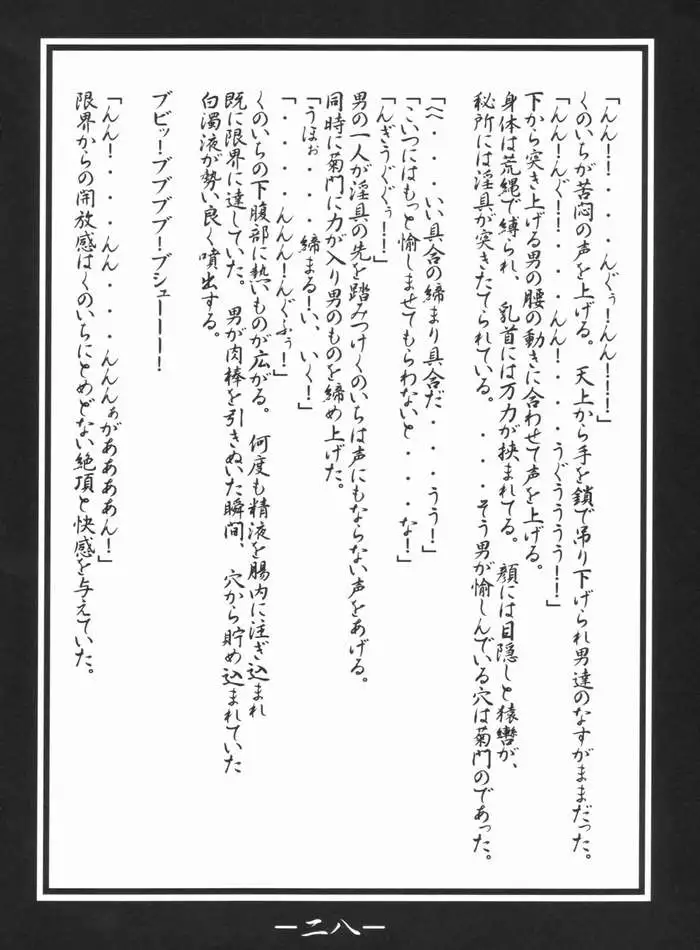 「んん！！・・・んぐぅ！んん！ーー！」
くのいちが苦悶の声を上げる。　天上から手を鎖で吊り下げられ男達のなすがままだった。
「んん！んぐ！！・・・んん！・・・うぐうううう！！」
下から突き上げる男の腰の動きに合わせて声を上げる。
身体は荒縄で縛られ、　乳首には万力が挟まれてる。　顔には目隠しと猿轡が、
秘所には淫具が突きたてられている。　・・・そう男が愉しんでいる穴は菊門のであった。
「へ・・・いい具合の締まり具合だ・・・うう！」
「こいつにはもっと愉しませてもらわないと・・・な！」
「んぎうぐぐぅ！！」
男の一人が淫具の先を踏みつけくのいちは声にもならない声をあげる。
同時に菊門に力が入り男のものを締め上げた。
「うほぉ・・・締まる！い、いく！」
「・・・・んんん！んぐふぅ！」
くのいちの下腹部に熱いものが広がる。　何度も精液を腸内に注ぎ込まれ
既に限界に達していた。　男が肉棒を引きぬいた瞬間、　穴から貯め込まれていた
白濁液が勢い良く噴出する。
ブビッ！ブブブブ！ブシューーー！
「んん！・・・んん・・・んんんぁがああああん！」
限界からの開放感はくのいちにとめどない絶頂と快感を与えていた。
ー二八ー